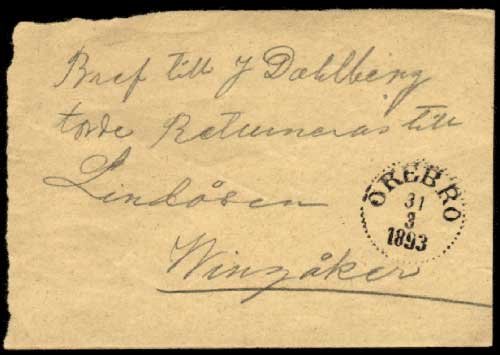 Bref till J Dahlberg
torde Returneras till
Lindåsen
Wingåker
ÖREBRO
31
3
1893